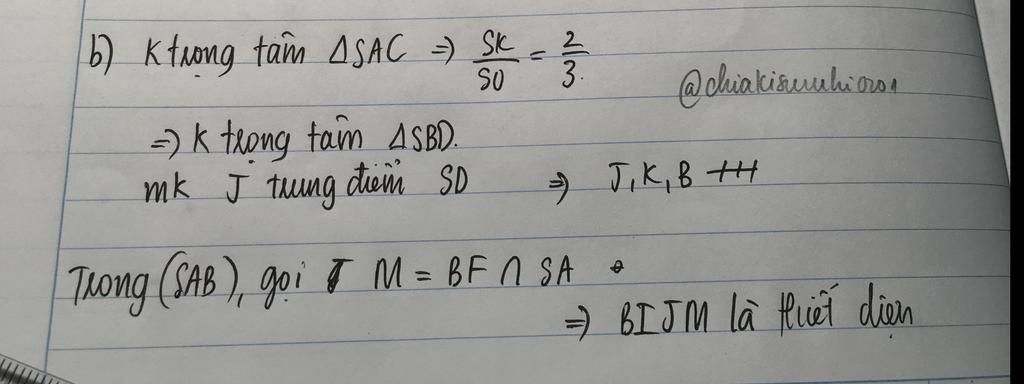 b) K trọng tâm ΔSAC => SK/SO = 2/3.
=> K trọng tâm ΔSBD.
mk J trung điểm SD => J, K, B +H
Trong (SAB), gọi M = BF ∩ SA
=> BIJM là thiết diện